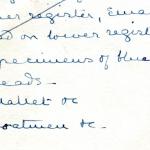 register, Ema
on lower regist
specimens of blue
eads.
mallet &c
oatmen &c.